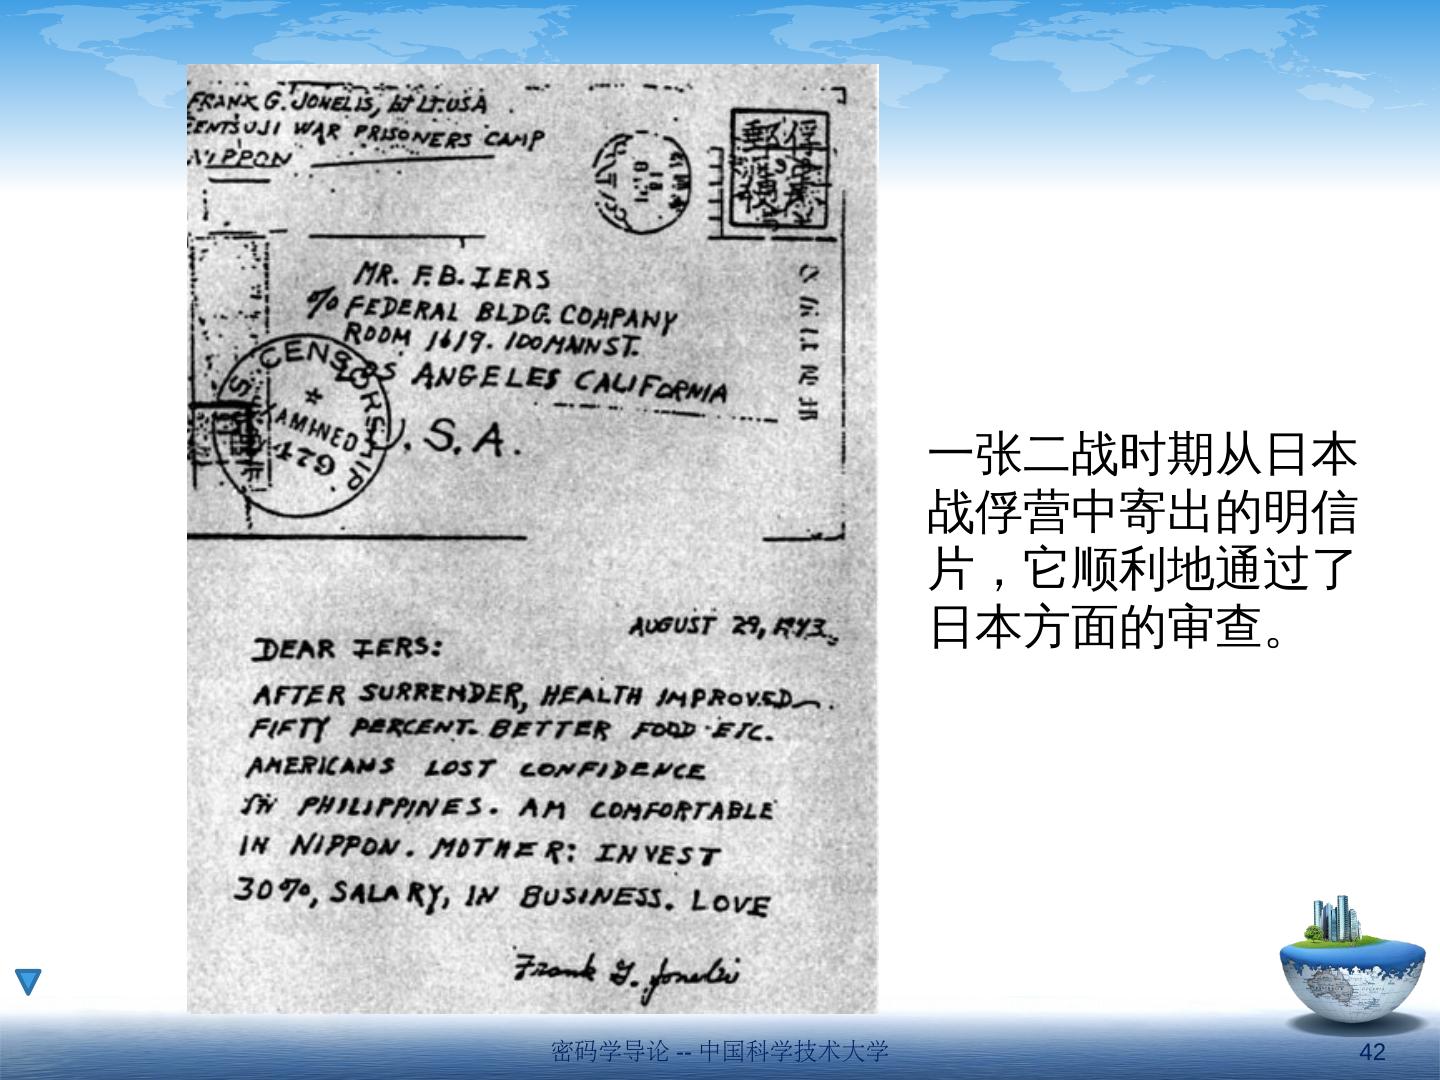 FRANK G. JONELIS, 1st LT. USA
ENTSUJI WAR PRISONERS CAMP
NIPPON
郵 俘
便
MR. F.B. IERS
% FEDERAL BLDG. COMPANY
ROOM 1619. 100 MAIN ST.
LOS ANGELES CALIFORNIA
U.S.A.
CENSORSHIP
AMINED
AUGUST 29, 1943
DEAR IERS:
AFTER SURRENDER, HEALTH IMPROVED
FIFTY PERCENT. BETTER FOOD ETC.
AMERICANS LOST CONFIDENCE
IN PHILIPPINES. AM COMFORTABLE
IN NIPPON. MOTHER: INVEST
30%, SALARY, IN BUSINESS. LOVE
Frank G. Jonelis
一张二战时期从日本
战俘营中寄出的明信
片，它顺利地通过了
日本方面的审查。
密码学导论 -- 中国科学技术大学
42